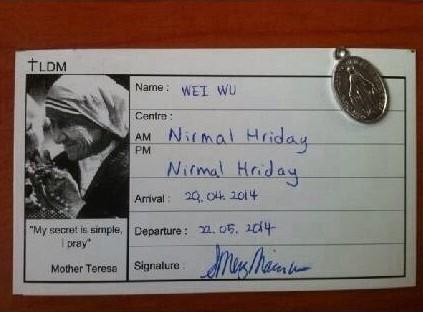 †LDM
Name : WEI WU
Centre :
AM Nirmal Hriday
PM
Nirmal Hriday
Arrival : 29. 04. 2014
Departure : 22. 05. 2014
"My secret is simple,
I pray"
Mother Teresa
Signature :